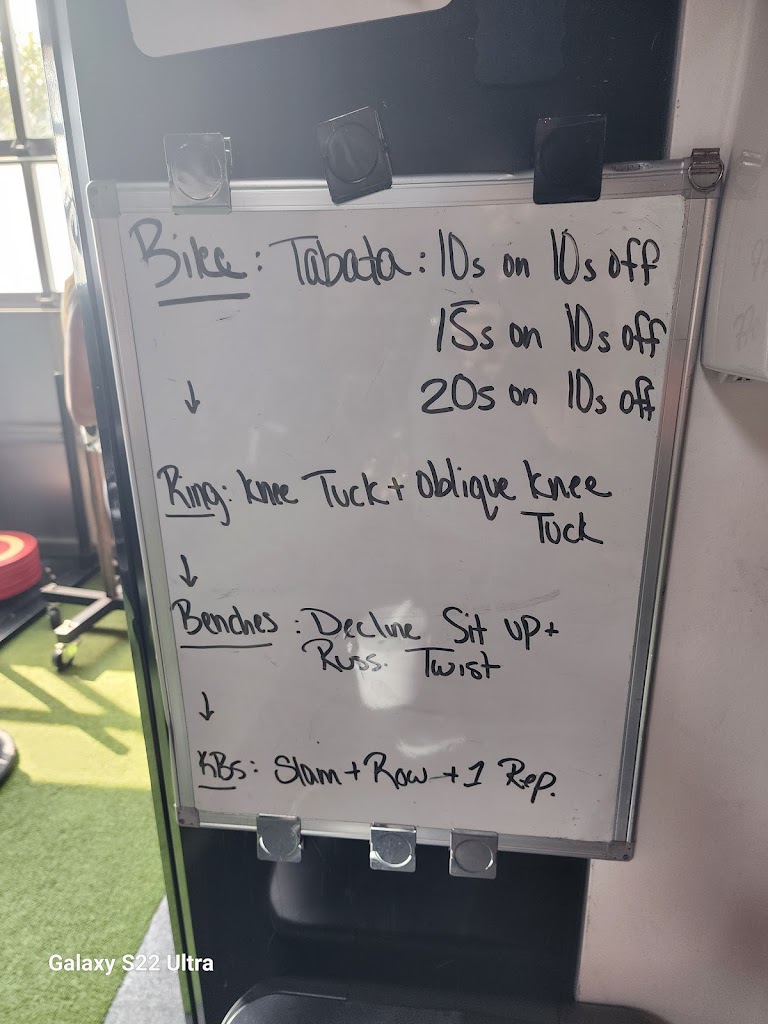 Bike: Tabata: 10s on 10s off
15s on 10s off
↓ 20s on 10s off
Ring: Knee Tuck + Oblique Knee
Tuck
↓
Benches: Decline Sit Up +
Russ. Twist
↓
KBs: Slam + Row + 1 Rep.
Galaxy S22 Ultra